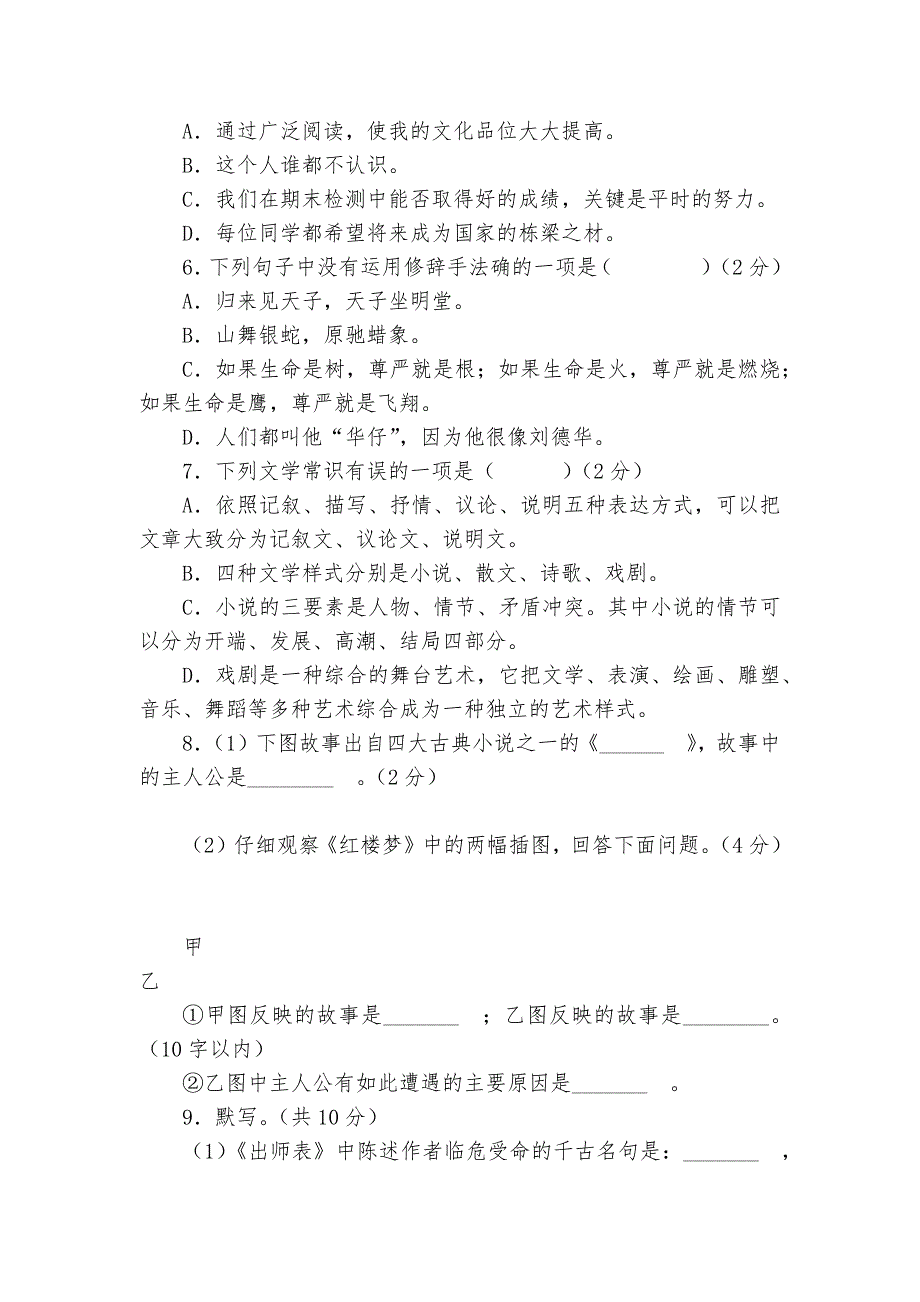 A．通过广泛阅读，使我的文化品位大大提高。
B．这个人谁都不认识。
C．我们在期末检测中能否取得好的成绩，关键是平时的努力。
D．每位同学都希望将来成为国家的栋梁之材。
6．下列句子中没有运用修辞手法确的一项是（　　　　）（2分）
A．归来见天子，天子坐明堂。
B．山舞银蛇，原驰蜡象。
C．如果生命是树，尊严就是根；如果生命是火，尊严就是燃烧；
如果生命是鹰，尊严就是飞翔。
D．人们都叫他“华仔”，因为他很像刘德华。
7．下列文学常识有误的一项是（　　　）（2分）
A．依照记叙、描写、抒情、议论、说明五种表达方式，可以把
文章大致分为记叙文、议论文、说明文。
B．四种文学样式分别是小说、散文、诗歌、戏剧。
C．小说的三要素是人物、情节、矛盾冲突。其中小说的情节可
以分为开端、发展、高潮、结局四部分。
D．戏剧是一种综合的舞台艺术，它把文学、表演、绘画、雕塑、
音乐、舞蹈等多种艺术综合成为一种独立的艺术样式。
8．（1）下图故事出自四大古典小说之一的《______　》，故事中
的主人公是________　。（2分）
（2）仔细观察《红楼梦》中的两幅插图，回答下面问题。（4分）
甲
乙
①甲图反映的故事是_______　；乙图反映的故事是________。
（10字以内）
②乙图中主人公有如此遭遇的主要原因是_______　。
9．默写。（共10分）
（1）《出师表》中陈述作者临危受命的千古名句是：_______　，